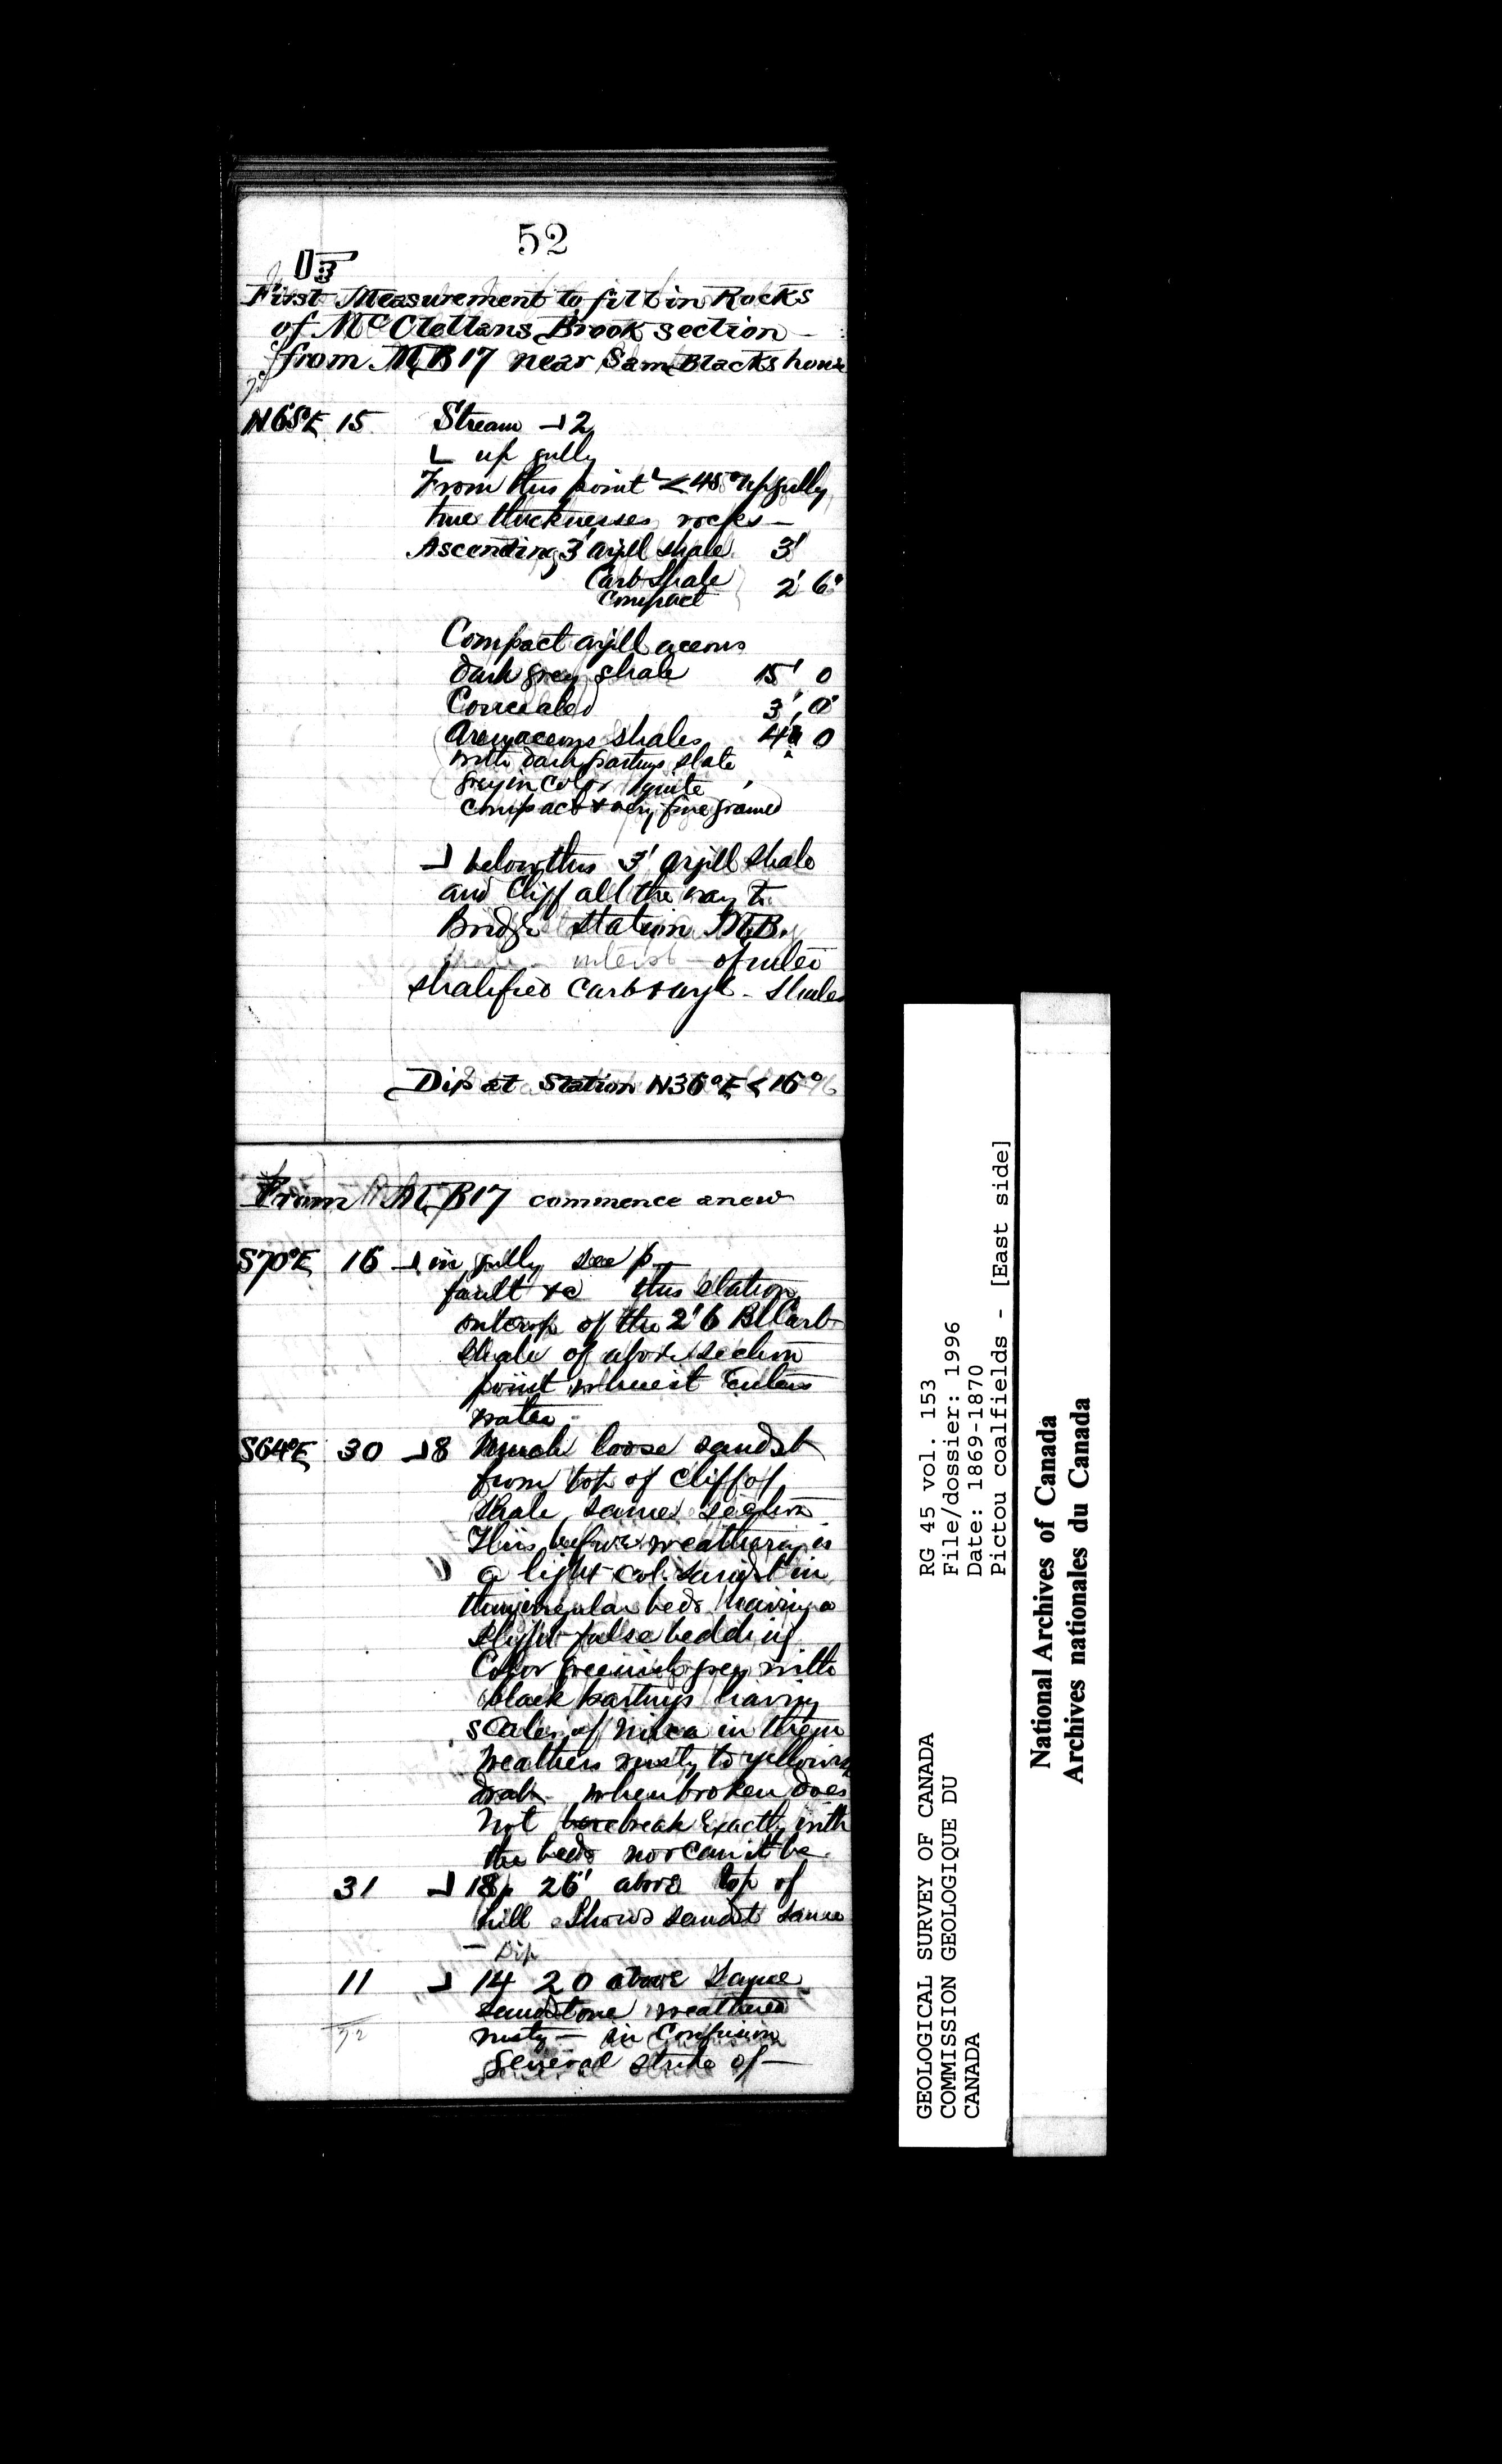 52
First Measurement to fill in Rocks
of McClellans Brook section –
from M,B 17 near Sam Blacks house
N68°E 15 Stream ⅃ 2
L up gully
From this point L < 48° up gully
true thicknesses rocks –
Ascending 3' argill shale 3'
Carb Shale
Compact 2' 6"
Compact argillaceous
dark grey shale 15' 0
Concealed 3', 0"
Arenaceous shales 4 0
with dark partings slate
grey in color quite
compact & very fine grained
⅃ below this 3' argill shale
and Cliff all the way to
Bridge station M.B.
of inter
stratified Carb & argl – Shales
Dip at Station N36°E < 16°
From M,B17 commence anew
S70°E 16 ⅃ in gully see p –
fault &c this station
outcrop of the 2'6 Bl Carb
Shale of above section
point where it Enters
water –
S64°E 30 ⅃8 Much loose sandst
from top of cliff of
shale same section
This before weathering is
a light col. sandst in
thin irregular beds having a
slight false bedding
Color greenish grey with
black partings having
scales of mica in them
Weathers rusty to yellowish
drab – when broken does
not break Exactly with
the beds nor can it be
31 ⅃ 18 26' above top of
hill Shows sandst same
– Dip
11 ⅃ 14 20 above same
sandstone weathered
rusty – in Confusion
32
General strike of –
GEOLOGICAL SURVEY OF CANADA
COMMISSION GEOLOGIQUE DU
CANADA
RG 45 vol. 153
File/dossier: 1996
Date: 1869-1870
Pictou coalfields - [East side]
National Archives of Canada
Archives nationales du Canada